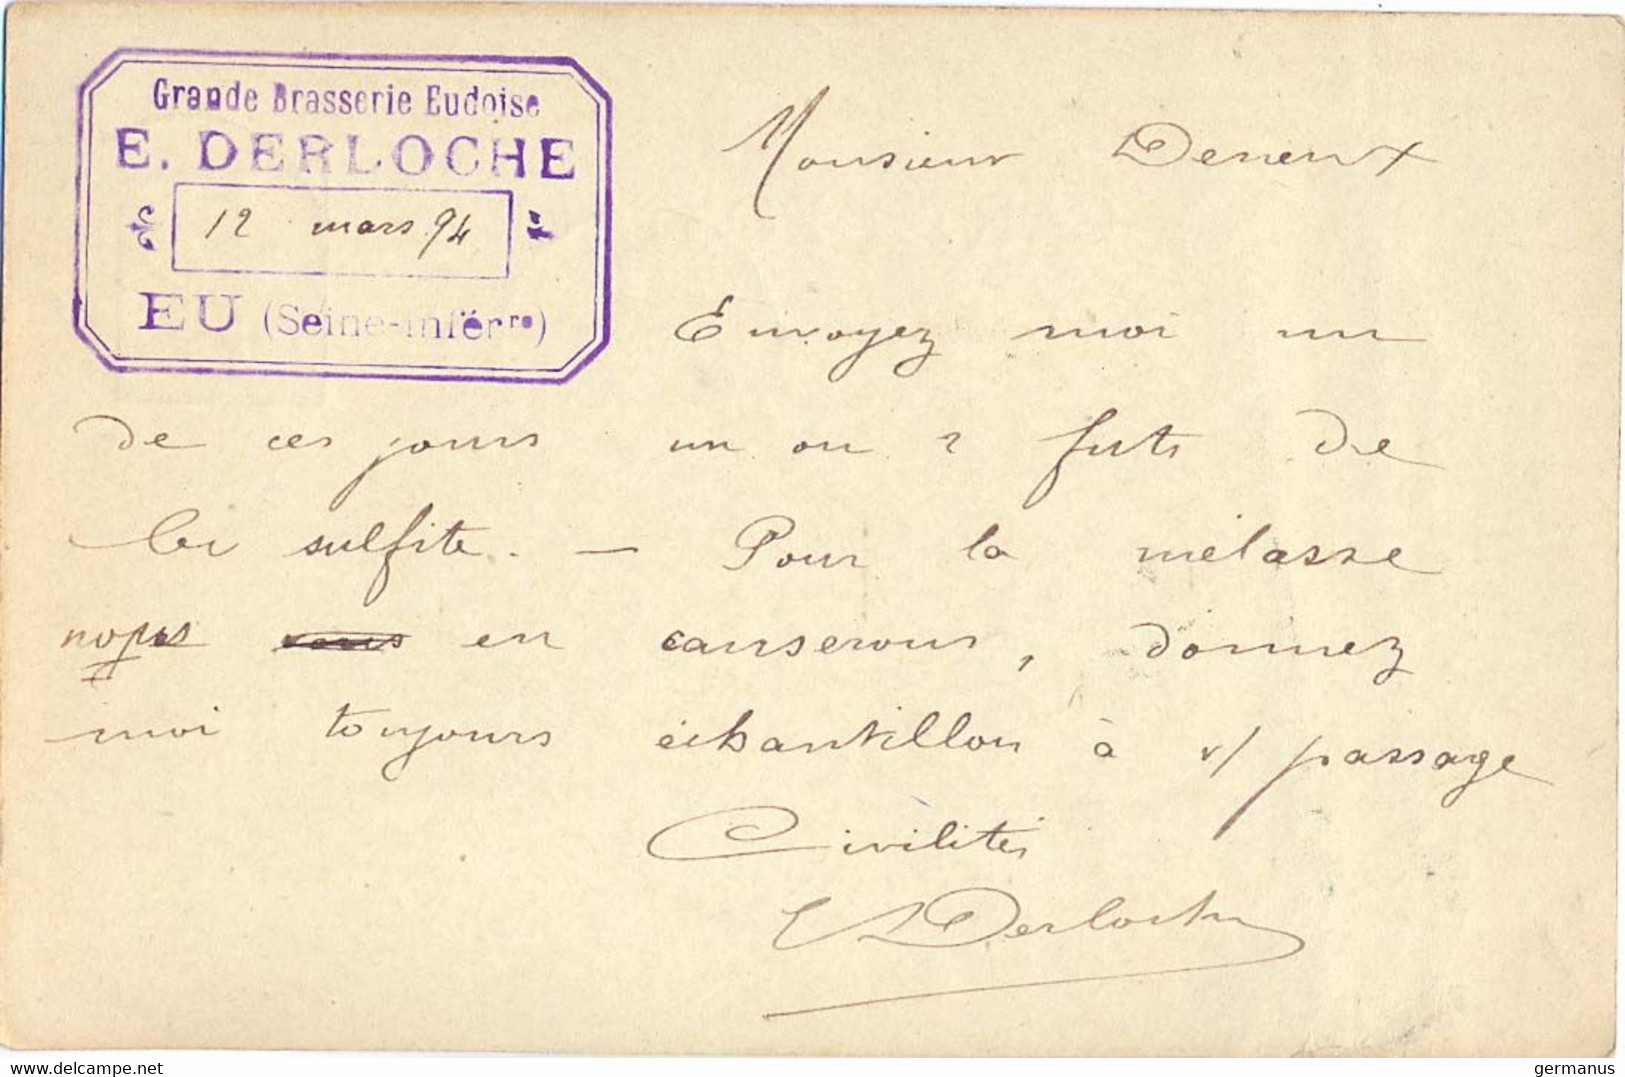 Grande Brasserie Eudoise
E. DERLOCHE
12 mars 94
EU (Seine-Inférre)
Monsieur Deneux
Envoyez moi un
de ces jours un ou 2 futs de
sulfite. — Pour la mélasse
nous en causerons, donnez
moi toujours échantillon à v/ passage
Civilités
E Derloche
delcampe.net
germanus